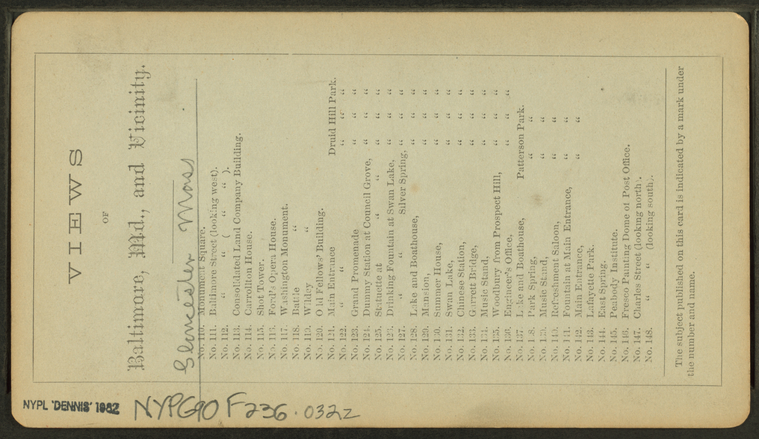 VIEWS
OF
Baltimore, Md., and Vicinity.
Gloucester Mass
No. 110. Monument Square.
No. 111. Baltimore Street (looking west).
No. 112. " " ( " " ).
No. 113. Consolidated Land Company Building.
No. 114. Carrollton House.
No. 115. Shot Tower.
No. 116. Ford's Opera House.
No. 117. Washington Monument.
No. 118. Battle "
No. 119. Wildey "
No. 120. Odd Fellows' Building.
No. 121. Main Entrance Druid Hill Park.
No. 122. " " " " "
No. 123. Grand Promenade " " "
No. 124. Dummy Station at Council Grove, " " "
No. 125. Stinette at " " " " "
No. 126. Drinking Fountain at Swan Lake, " " "
No. 127. " " Silver Spring, " " "
No. 128. Lake and Boathouse, " " "
No. 129. Mansion, " " "
No. 130. Summer House, " " "
No. 131. Swan Lake, " " "
No. 132. Chinese Station, " " "
No. 133. Garrett Bridge, " " "
No. 134. Music Stand, " " "
No. 135. Woodbury from Prospect Hill, " " "
No. 136. Engineer's Office, " " "
No. 137. Lake and Boathouse, Patterson Park.
No. 138. Park Spring, " "
No. 139. Music Stand, " "
No. 140. Refreshment Saloon, " "
No. 141. Fountain at Main Entrance, " "
No. 142. Main Entrance, " "
No. 143. Lafayette Park.
No. 144. East Spring.
No. 145. Peabody Institute.
No. 146. Fresco Painting Dome of Post Office.
No. 147. Charles Street (looking north).
No. 148. " " (looking south).
The subject published on this card is indicated by a mark under
the number and name.
NYPL 'DENNIS' 1982 NYPG90 F236.032z